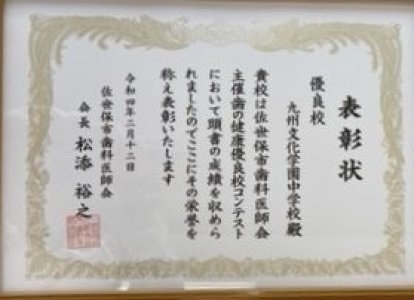 表彰状
優良校
九州文化学園中学校殿
貴校は佐世保市歯科医師会
主催歯の健康優良校コンテスト
において頭書の成績を収めら
れましたのでここにその栄誉を
称え表彰いたします
令和四年二月十二日
佐世保市歯科医師会
会長 松添裕之